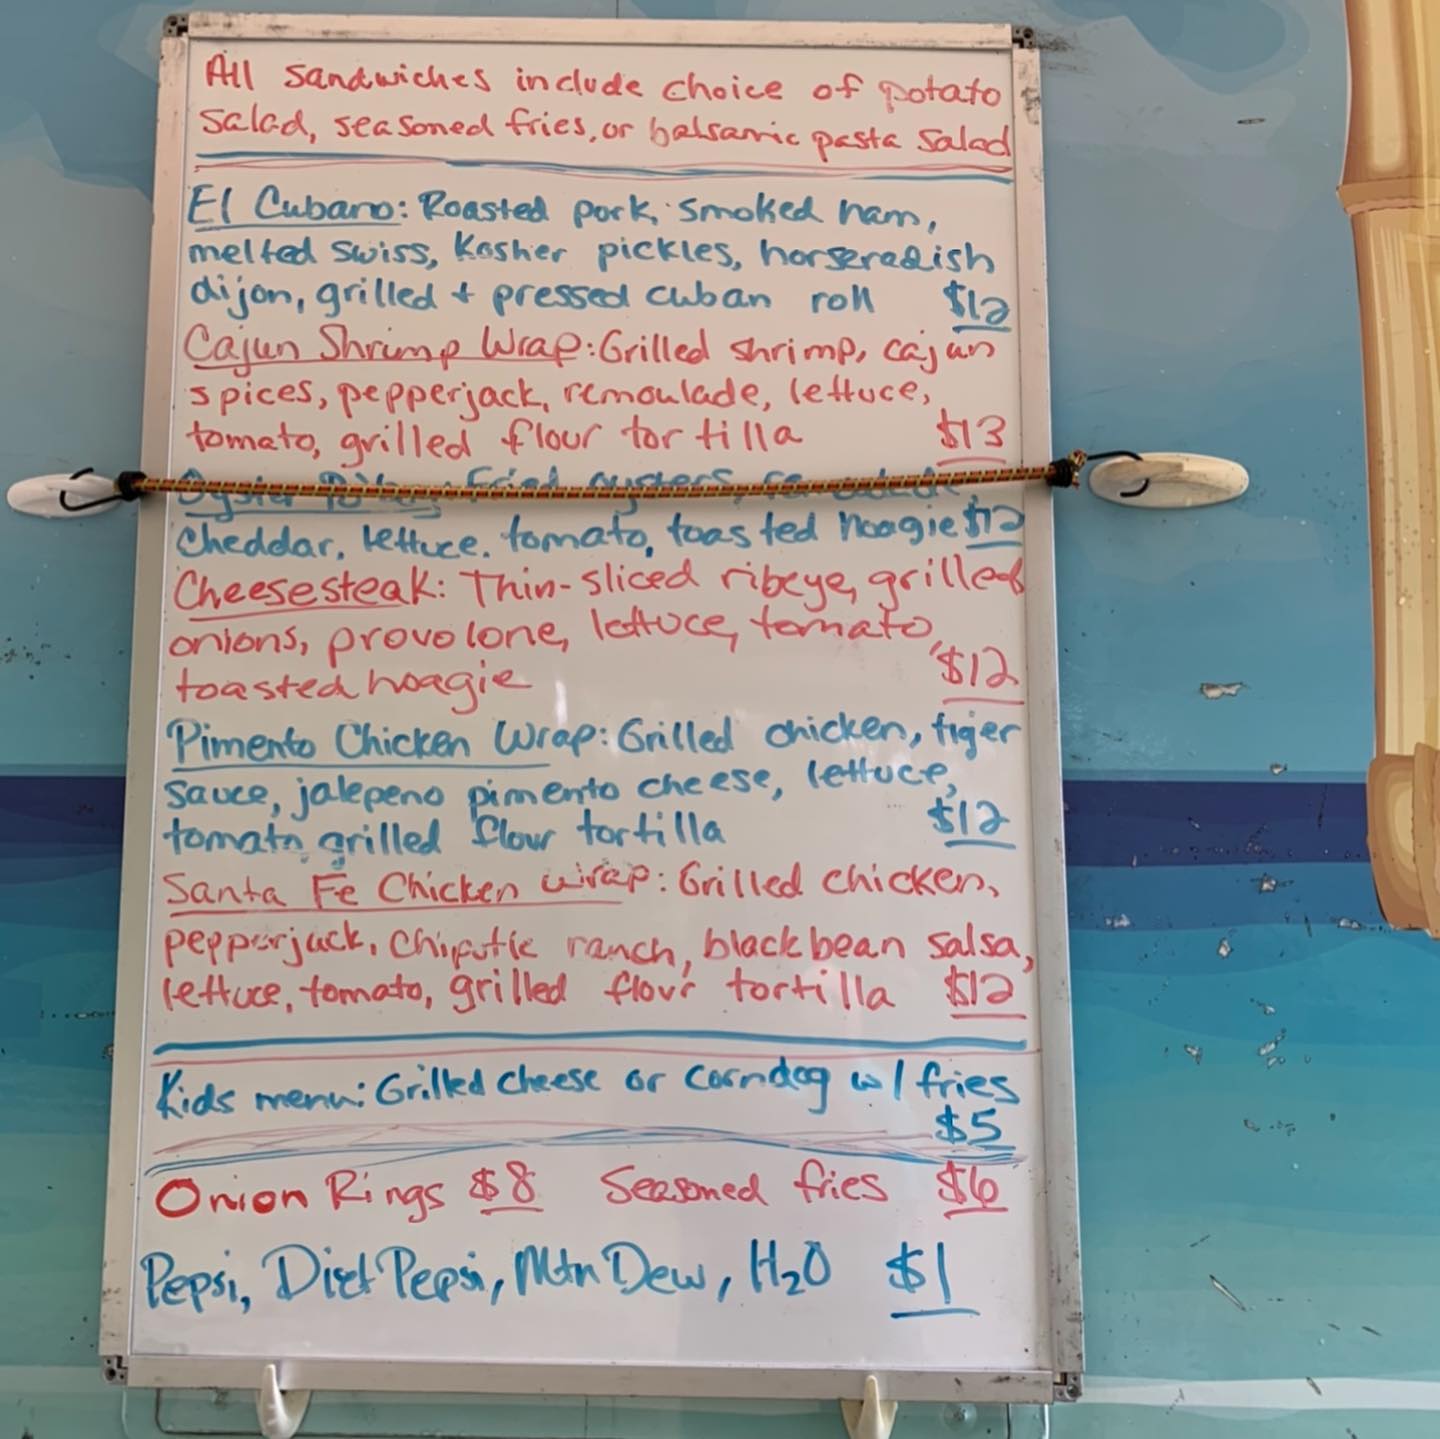 All sandwiches include choice of potato
salad, seasoned fries, or balsamic pasta salad
El Cubano: Roasted pork, smoked ham,
melted swiss, Kosher pickles, horseradish
dijon, grilled + pressed cuban roll $12
Cajun Shrimp Wrap: Grilled shrimp, cajun
spices, pepperjack, remoulade, lettuce,
tomato, grilled flour tortilla $13
Oyster Fried oysters,
cheddar, lettuce, tomato, toasted hoagie $12
Cheesesteak: Thin-sliced ribeye, grilled
onions, provolone, lettuce, tomato,
toasted hoagie $12
Pimento Chicken Wrap: Grilled chicken, tiger
sauce, jalepeno pimento cheese, lettuce,
tomato, grilled flour tortilla $12
Santa Fe Chicken wrap: Grilled chicken,
pepperjack, chipotle ranch, black bean salsa,
lettuce, tomato, grilled flour tortilla $12
Kids menu: Grilled cheese or corndog w/ fries
$5
Onion Rings $8 Seasoned fries $6
Pepsi, Diet Pepsi, Mtn Dew, H2O $1